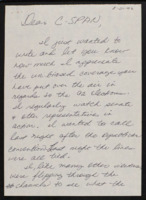 Dear C-SPAN,
I just wanted to
write and let you know
how much I appreciate
the unbiased coverage you
have put over the air in
regards to the election.
I regularly watch senate
& other representatives in
I wanted to call
last night after the republican
convention last night the lines
were all tied.
I, like many other
were flipping through the
channels to see what the